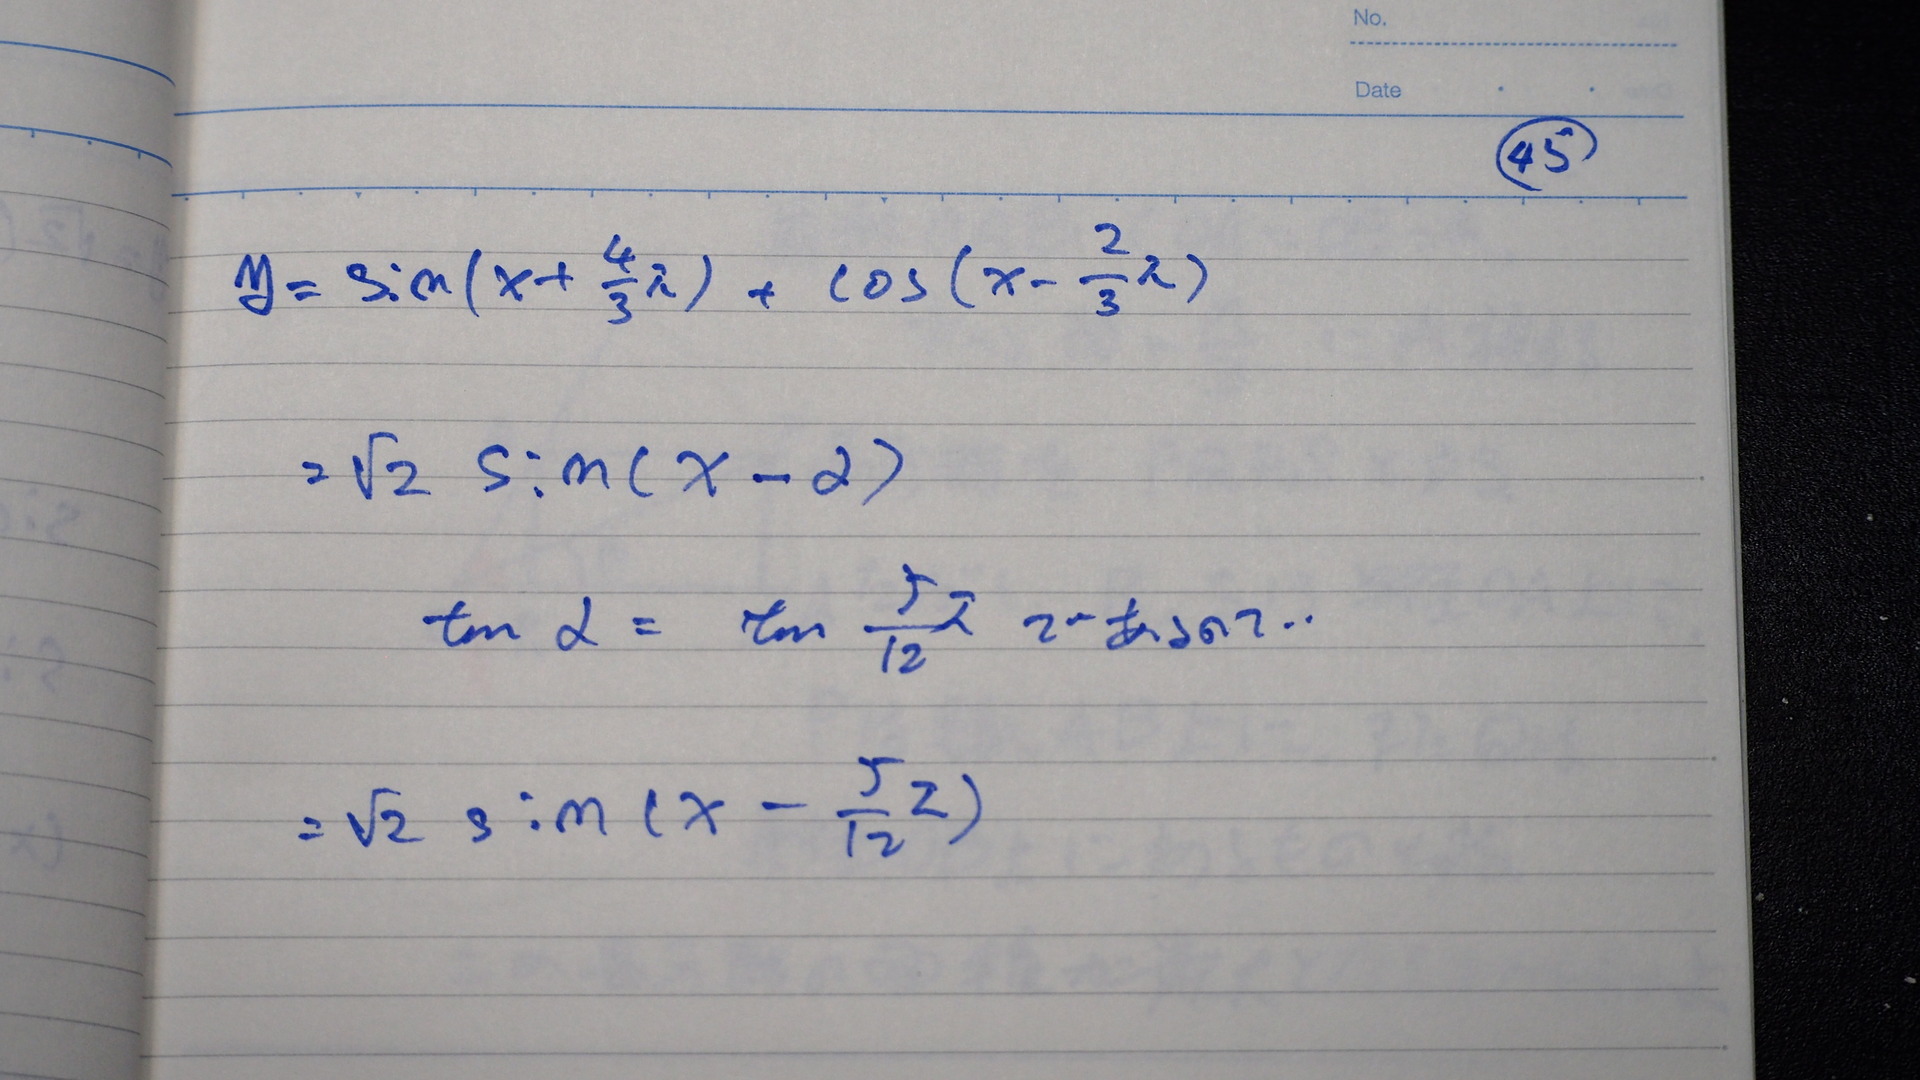 No.
Date
45
y = sin(x + 4/3 π) + cos(x - 2/3 π)
= √2 sin(x - α)
tan α = tan 5/12 π であるので..
= √2 sin(x - 5/12 π)